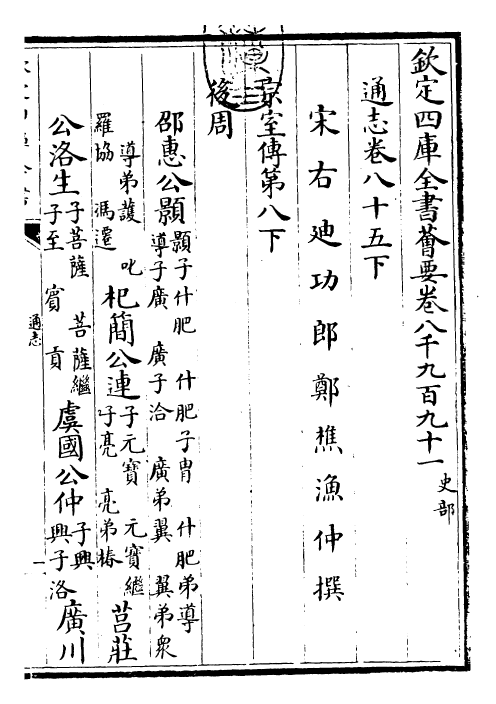 欽定四庫全書薈要卷八千九百九十一 史部
通志卷八十五下
宋右迪功郎鄭樵漁仲撰
宗室傳第八下
後周
邵惠公顥 顥子什肥 什肥子胄 什肥弟導
導子廣 廣子洽 廣弟翼 翼弟眾
導弟護 叱
羅協 馮遷
杞簡公連 子元寶 元寶繼
子亮 亮弟椿
莒莊
公洛生 子菩薩 菩薩繼
子至 賓 貢
虞國公仲 子興
興子洛
廣川
通志
一